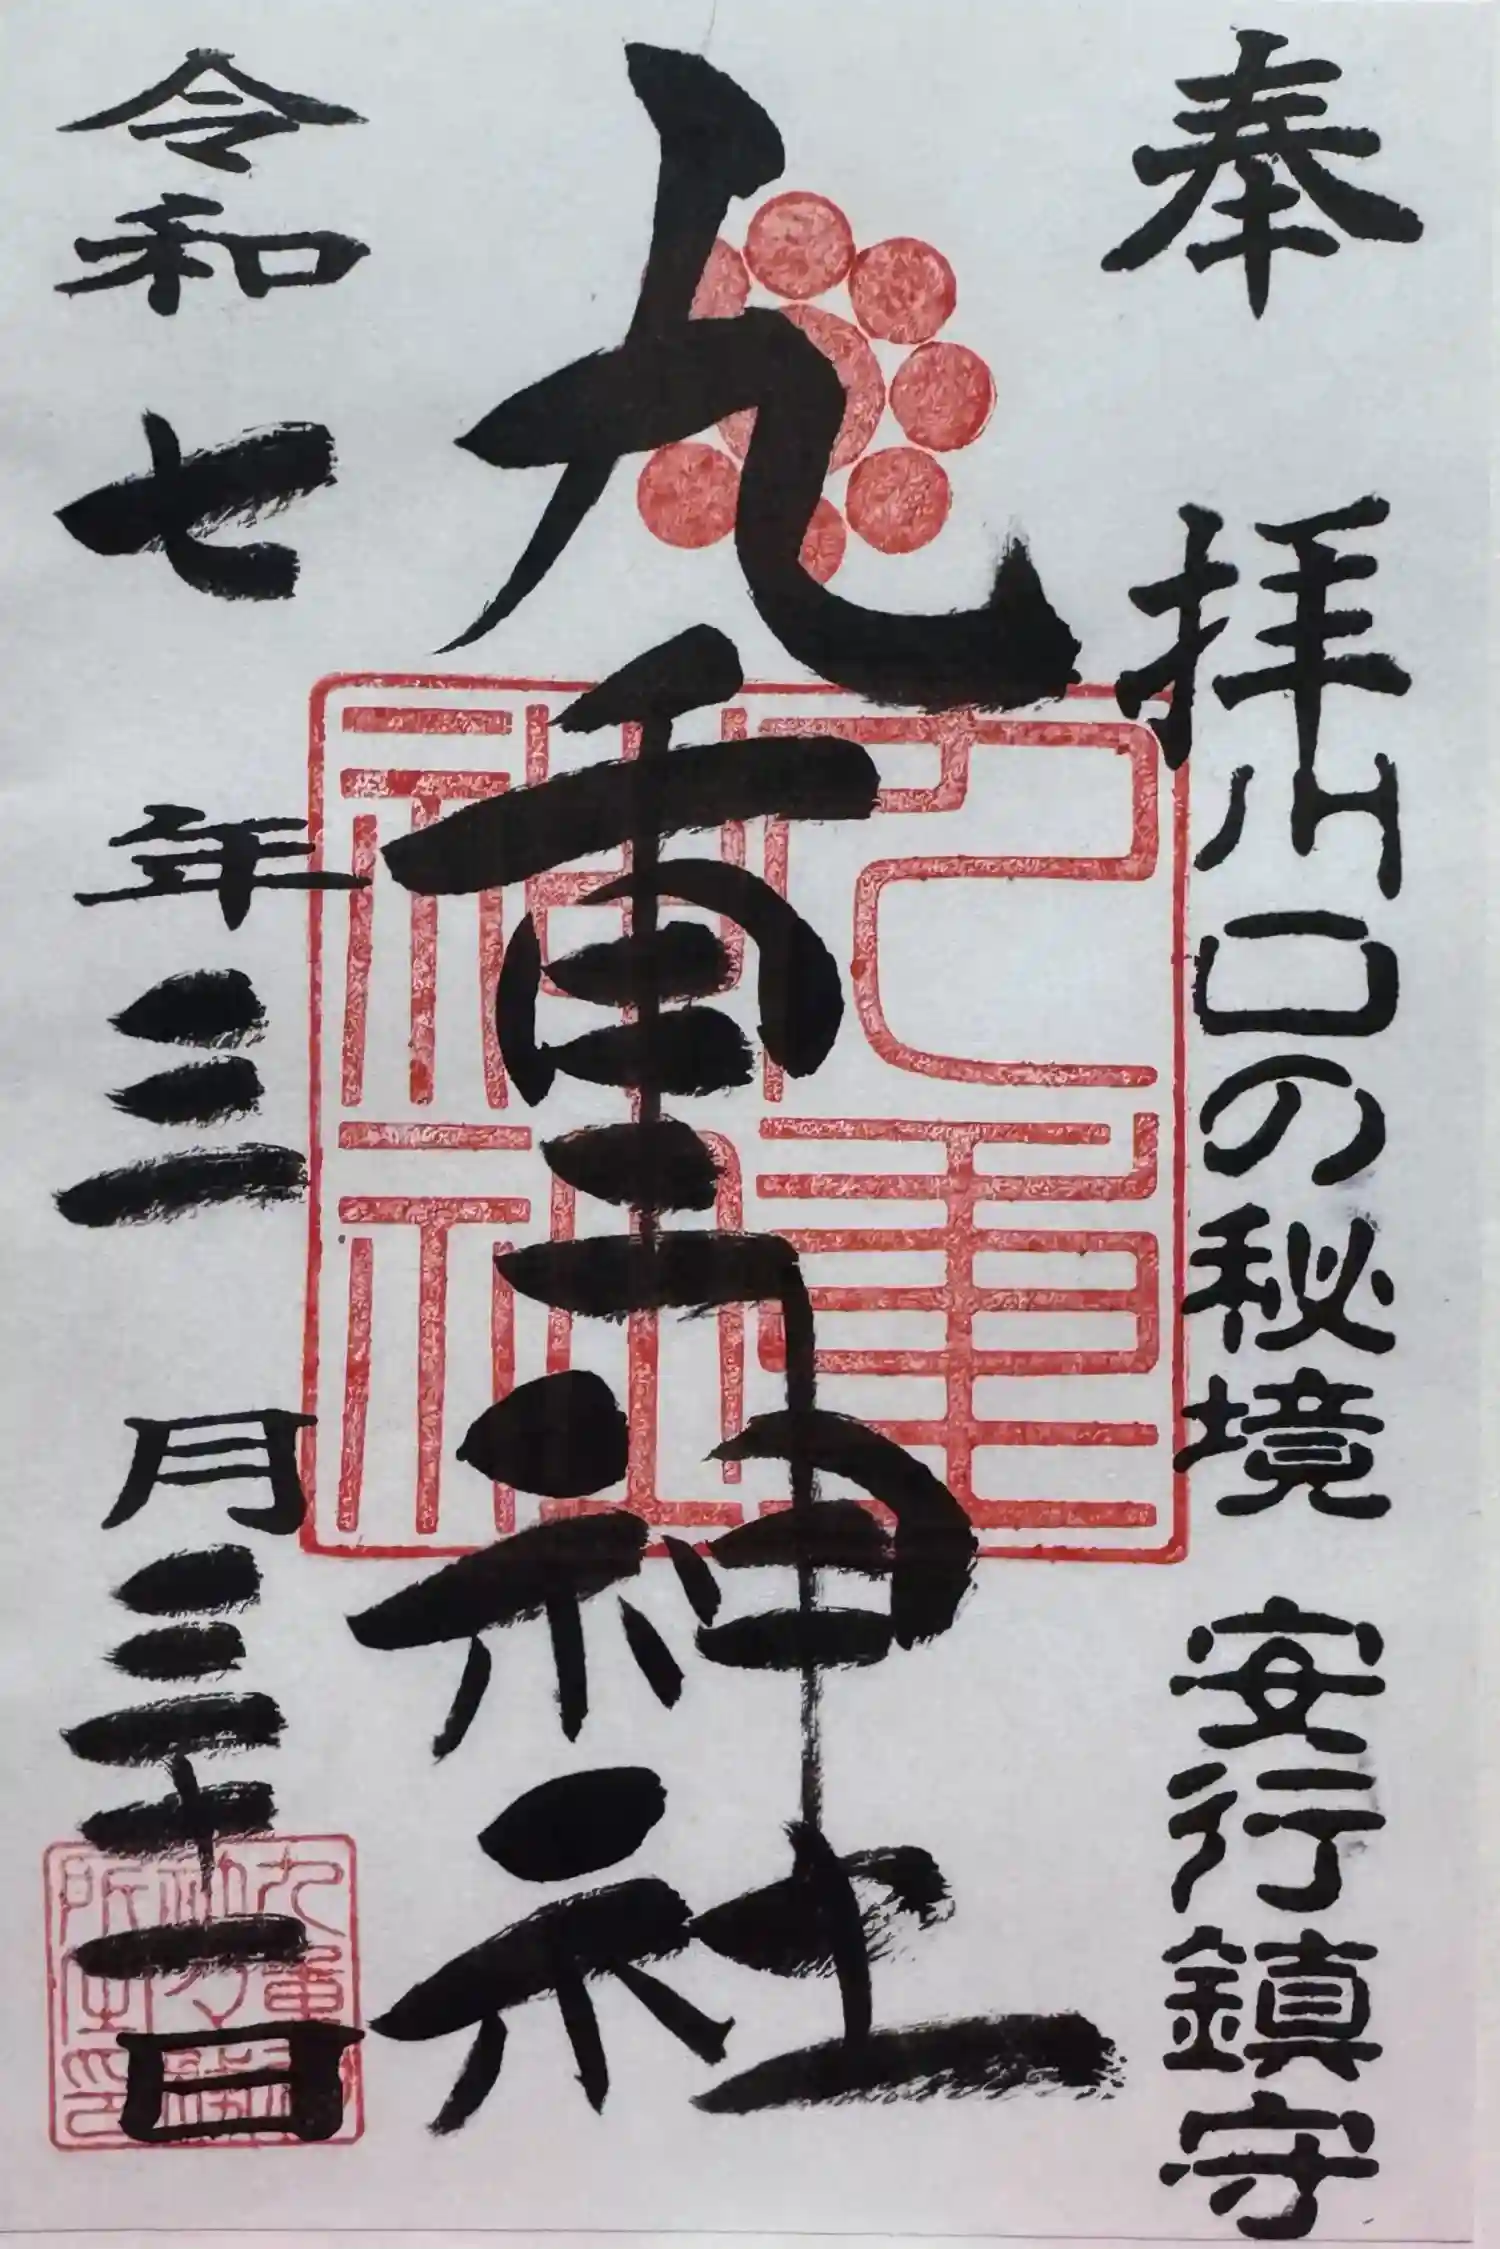 奉拝
川口の秘境 安行鎮守
九重神社
令和七年三月三十一日
九重神社
九重神社社務所之印